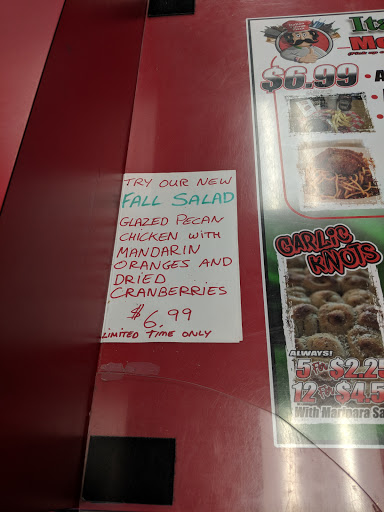 TRY OUR NEW
FALL SALAD
GLAZED PECAN
CHICKEN WITH
MANDARIN
ORANGES AND
DRIED
CRANBERRIES
$6.99
LIMITED TIME ONLY
$6.99
GARLIC
KNOTS
ALWAYS!
5 FOR $2.25
12 FOR $4.5
With Marinara Sa